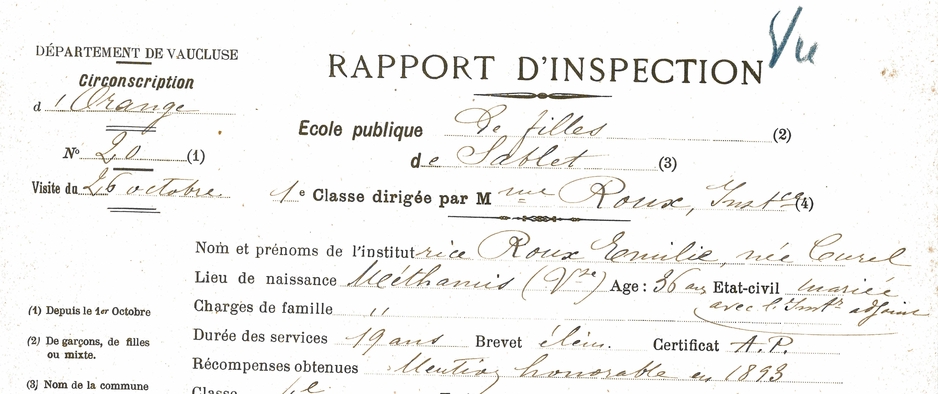 Vu
DÉPARTEMENT DE VAUCLUSE
RAPPORT D'INSPECTION
Circonscription
d'Orange
Ecole publique De filles (2)
N° 20 (1)
de Sablet (3)
Visite du 26 octobre
1e Classe dirigée par Mme Roux, Instce (4)
Nom et prénoms de l'institutrice Roux Emilie, née Curel
Lieu de naissance Méthamis (Vse) Age : 36 ans Etat-civil mariée
avec l'Instr adjoint
(1) Depuis le 1er Octobre
Charges de famille "
(2) De garçons, de filles
ou mixte.
Durée des services 19 ans Brevet élém. Certificat A.P.
Récompenses obtenues Mention honorable en 1893
(3) Nom de la commune
Classe 1e